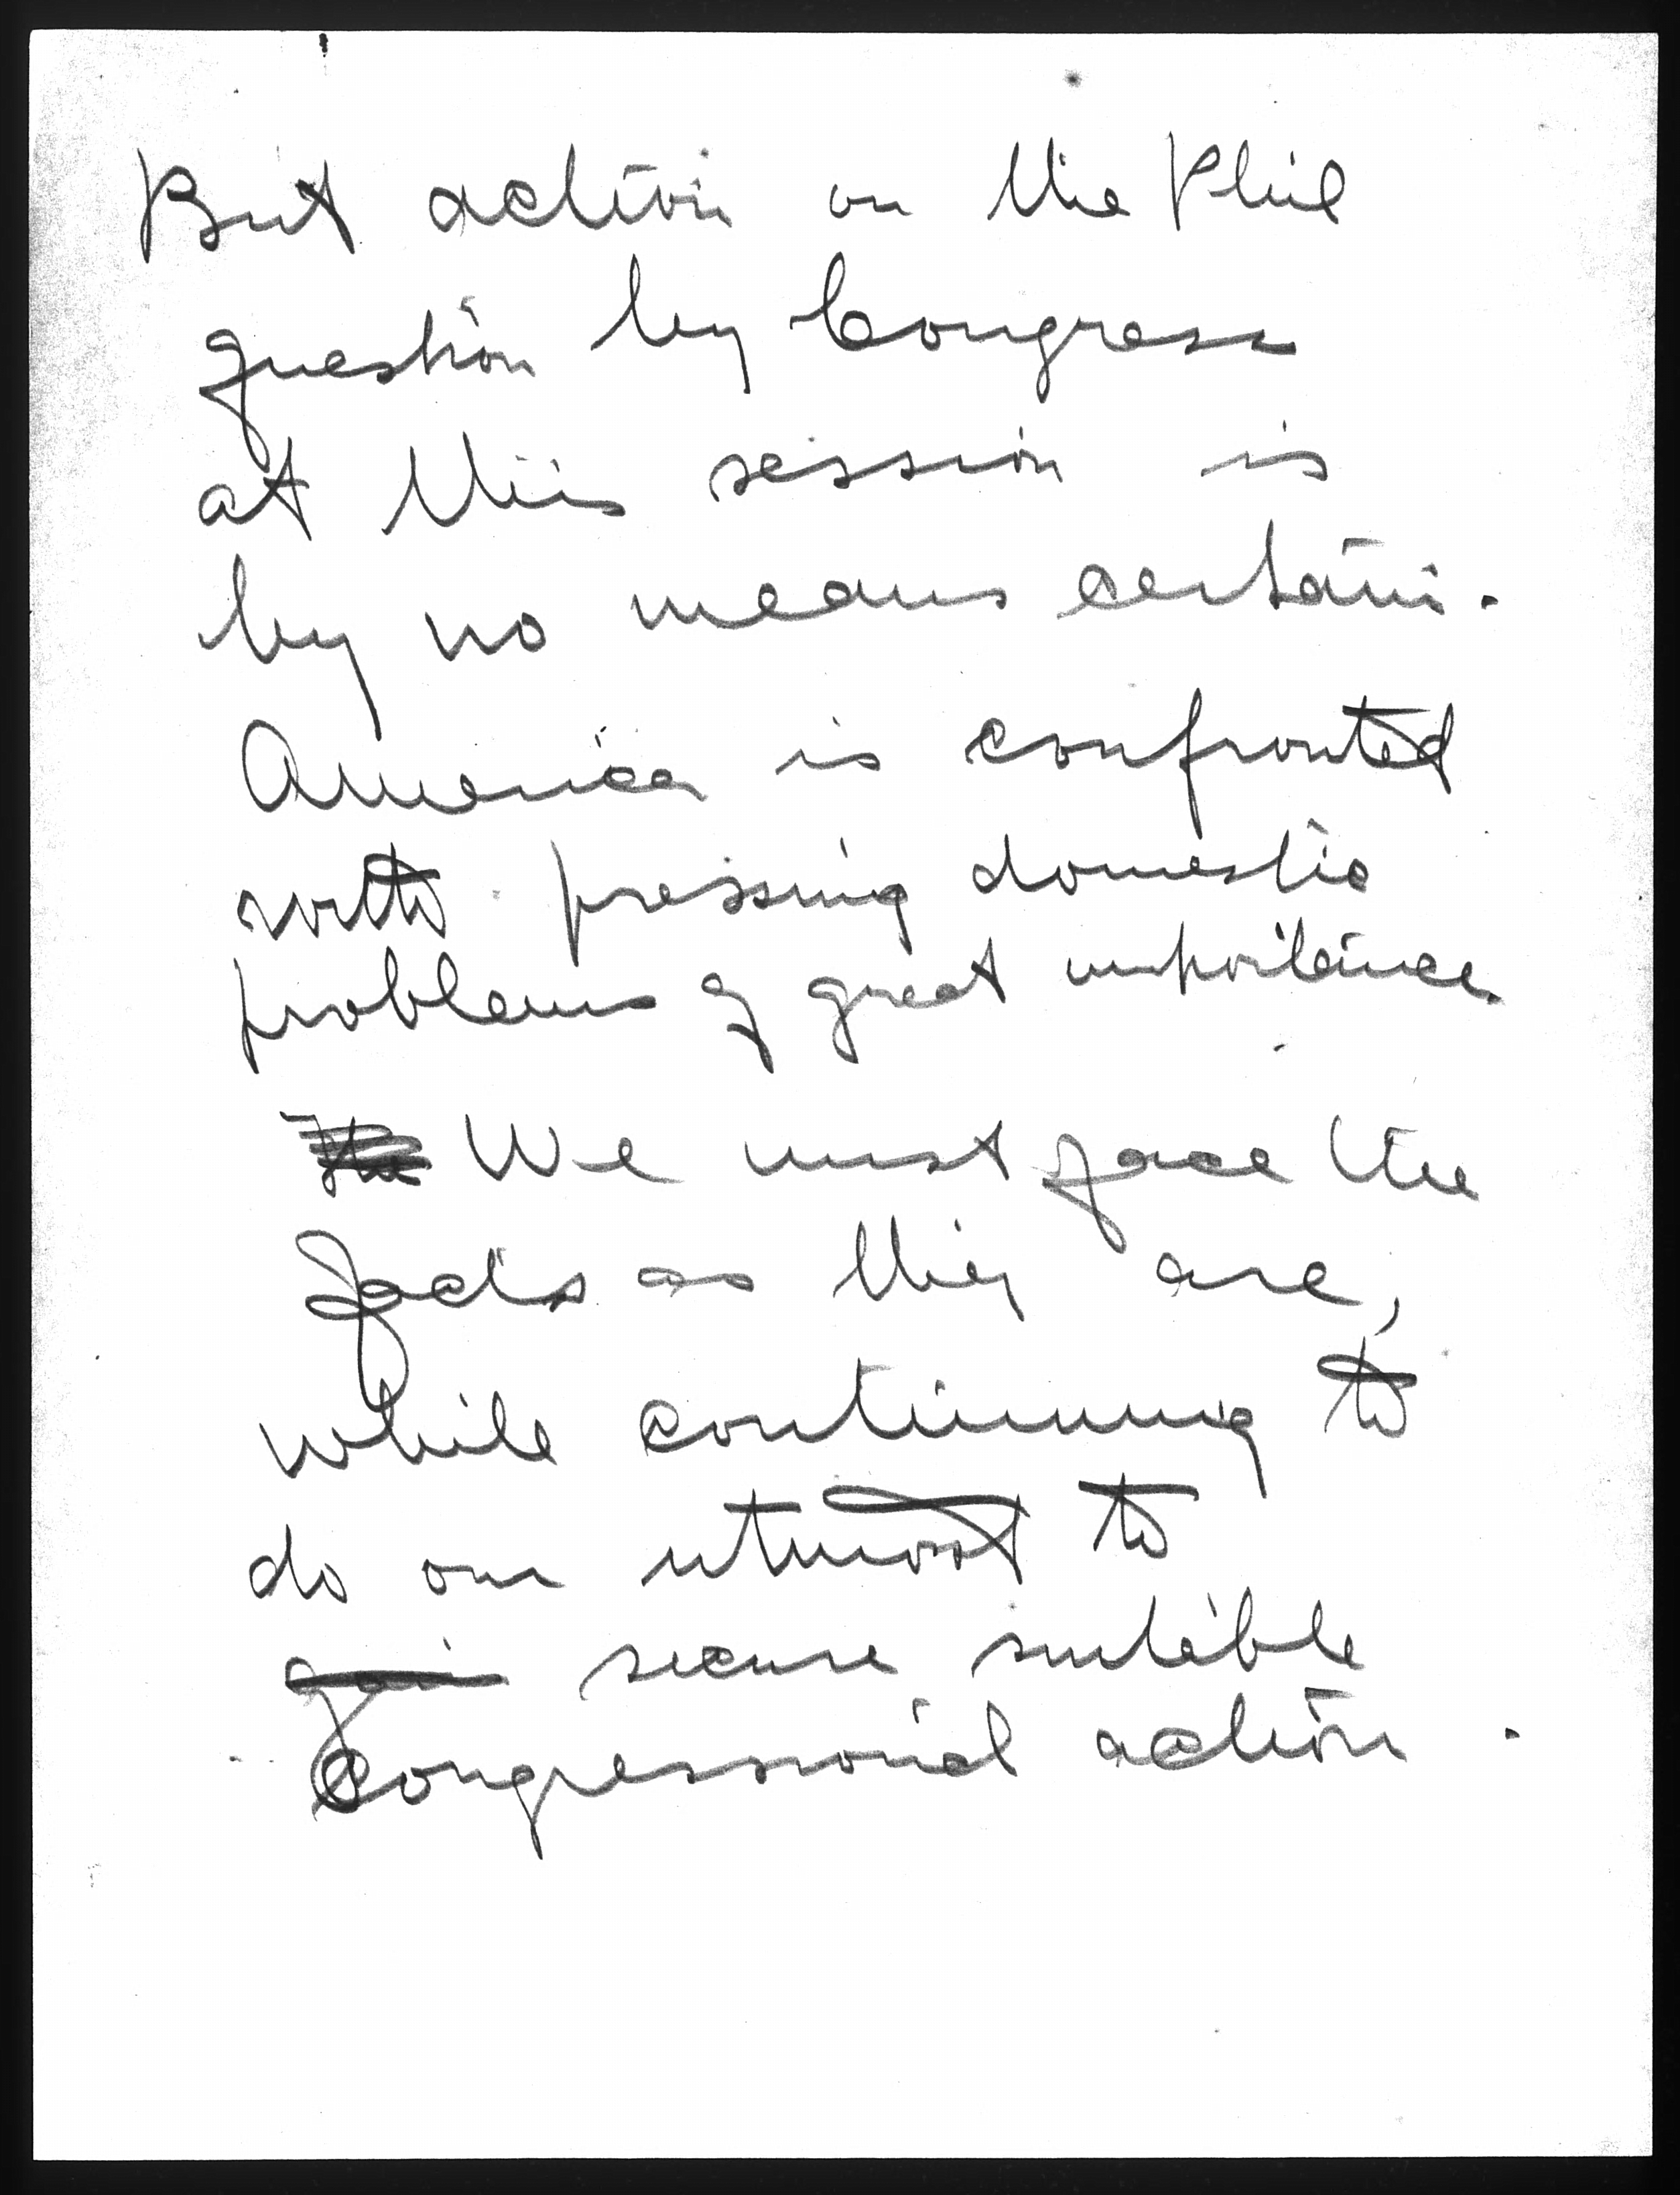 But action on the Phil
question by Congress
at this session is
by no means certain.
America is confronted
with pressing domestic
problems of great importance.
We must face the
facts as they are,
while continuing to
do our utmost to
gain secure suitable
Congressional action.